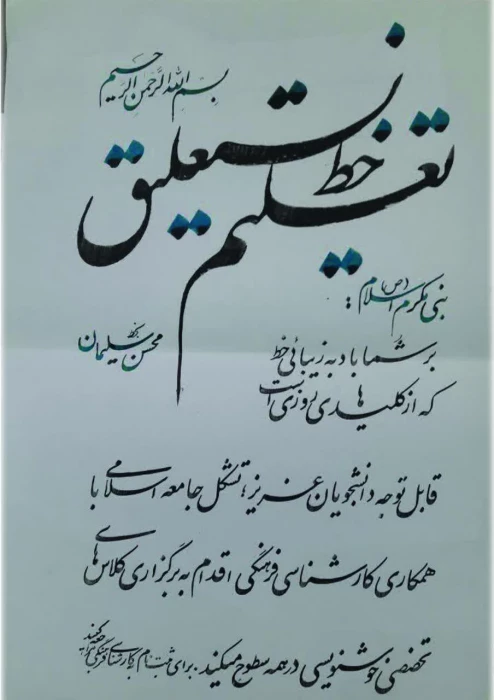 بسم الله الرحمن الرحیم
تعلیم خط نستعلیق
نبی مکرم اسلام (ص) :
بر شما باد به زیبائی خط
که از کلیدهای روزی است
بخط محسن سلیمان
قابل توجه دانشجویان عزیز؛ تشکل جامعه اسلامی با
همکاری کارشناسی فرهنگی اقدام به برگزاری کلاس‌های
تخصصی خوشنویسی در همه سطوح میکند. برای ثبت نام به کارشناسی فرهنگی مراجعه کنید